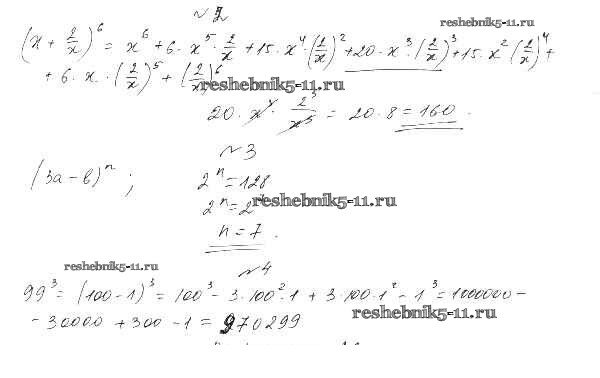 №2
reshebnik5-11.ru
(x + 2/x)^6 = x^6 + 6 · x^5 · 2/x + 15 · x^4 · (2/x)^2 + 20 · x^3 · (2/x)^3 + 15 · x^2 (2/x)^4 +
+ 6 · x · (2/x)^5 + (2/x)^6
reshebnik5-11.ru
20 · x^3 · 2^3/x^3 = 20 · 8 = 160.
№3
(3a - b)^n ; 2^n = 128
2^n = 2^7
reshebnik5-11.ru
n = 7.
reshebnik5-11.ru
№4
99^3 = (100 - 1)^3 = 100^3 - 3 · 100^2 · 1 + 3 · 100 · 1^2 - 1^3 = 1000000 -
reshebnik5-11.ru
- 30000 + 300 - 1 = 970299